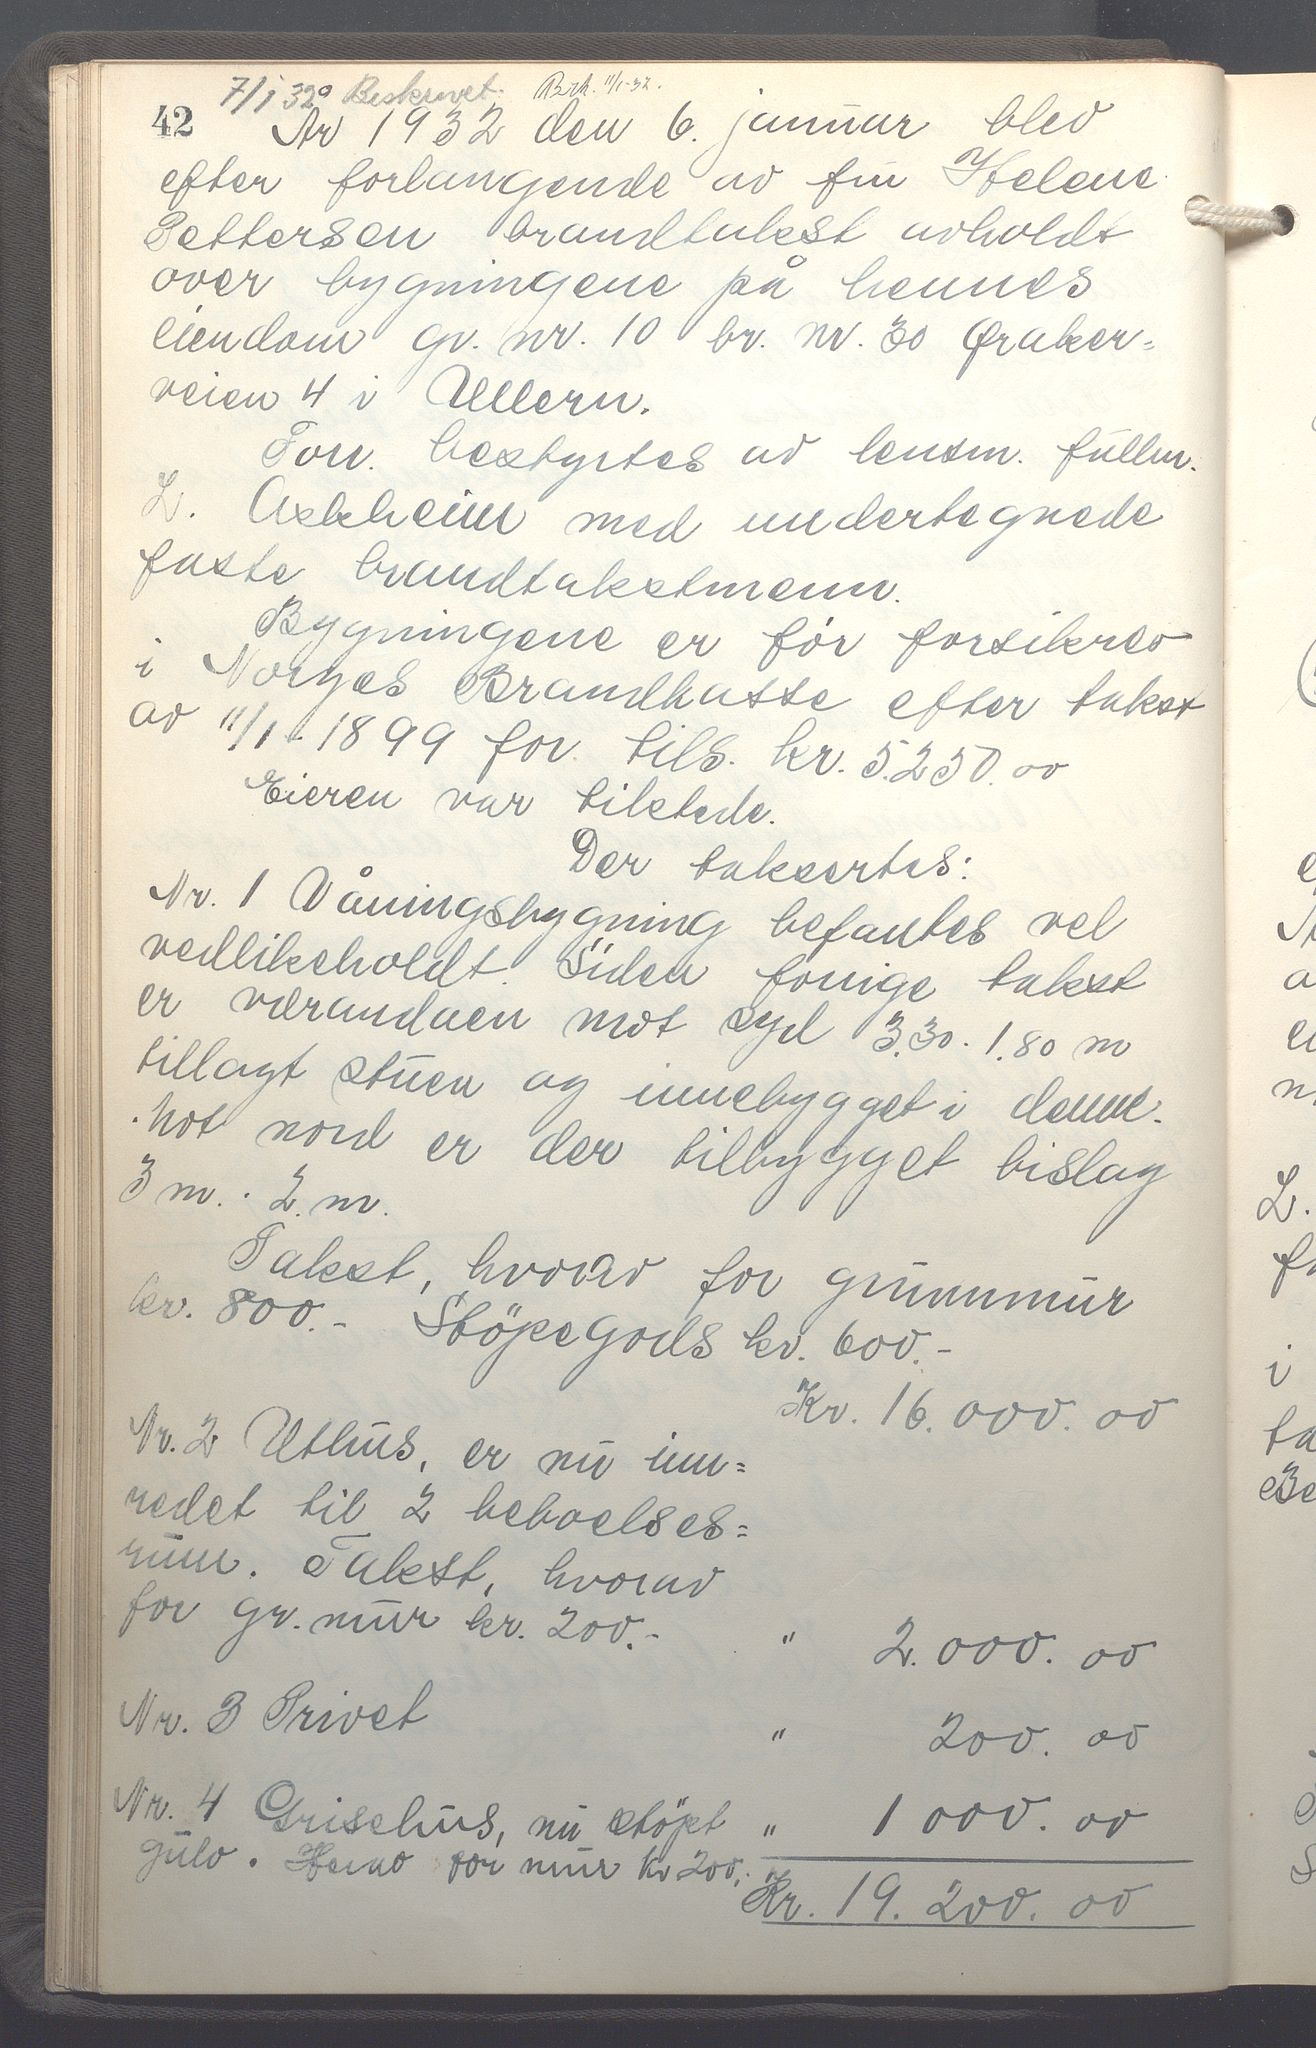 7/1 32 Beskrevet. Brk. 11/1-32.
42 År 1932 den 6. januar blev
efter forlangende av fru Helene
Pettersen brandtakst avholdt
over bygningene på hennes
eiendom gr. nr. 10 br. nr. 30 Øraker=
veien 4 i Ullern.
Forr. bestyrtes av lensm. fullm.
L. Askheim med undertegnede
faste brandtakstmenn.
Bygningene er før forsikret
i Norges Brandkasse efter takst
av 11/1-1899 for tils. kr. 5.250.00
Eieren var tilstede.
Der taksertes:
Nr. 1 Våningsbygning befantes vel
vedlikeholdt. Siden forrige takst
er verandaen mot syd 3.30 . 1.80 m
tillagt stuen og innebygget i denne.
Mot nord er der tilbygget bislag
3 m. . 2. m.
Takst, hvorav for grunnmur
kr. 800.- Støpegods kr. 600.-
Kr. 16.000.00
Nr. 2 Uthus, er nu inn=
redet til 2 beboelses=
rum. Takst, hvorav
for gr. mur kr. 200.- " 2.000.00
Nr. 3 Privet " 200.00
Nr. 4 Grisehus, nu støpt " 1000.00
gulv. Herav for mur kr 200.-
Kr. 19.200.00